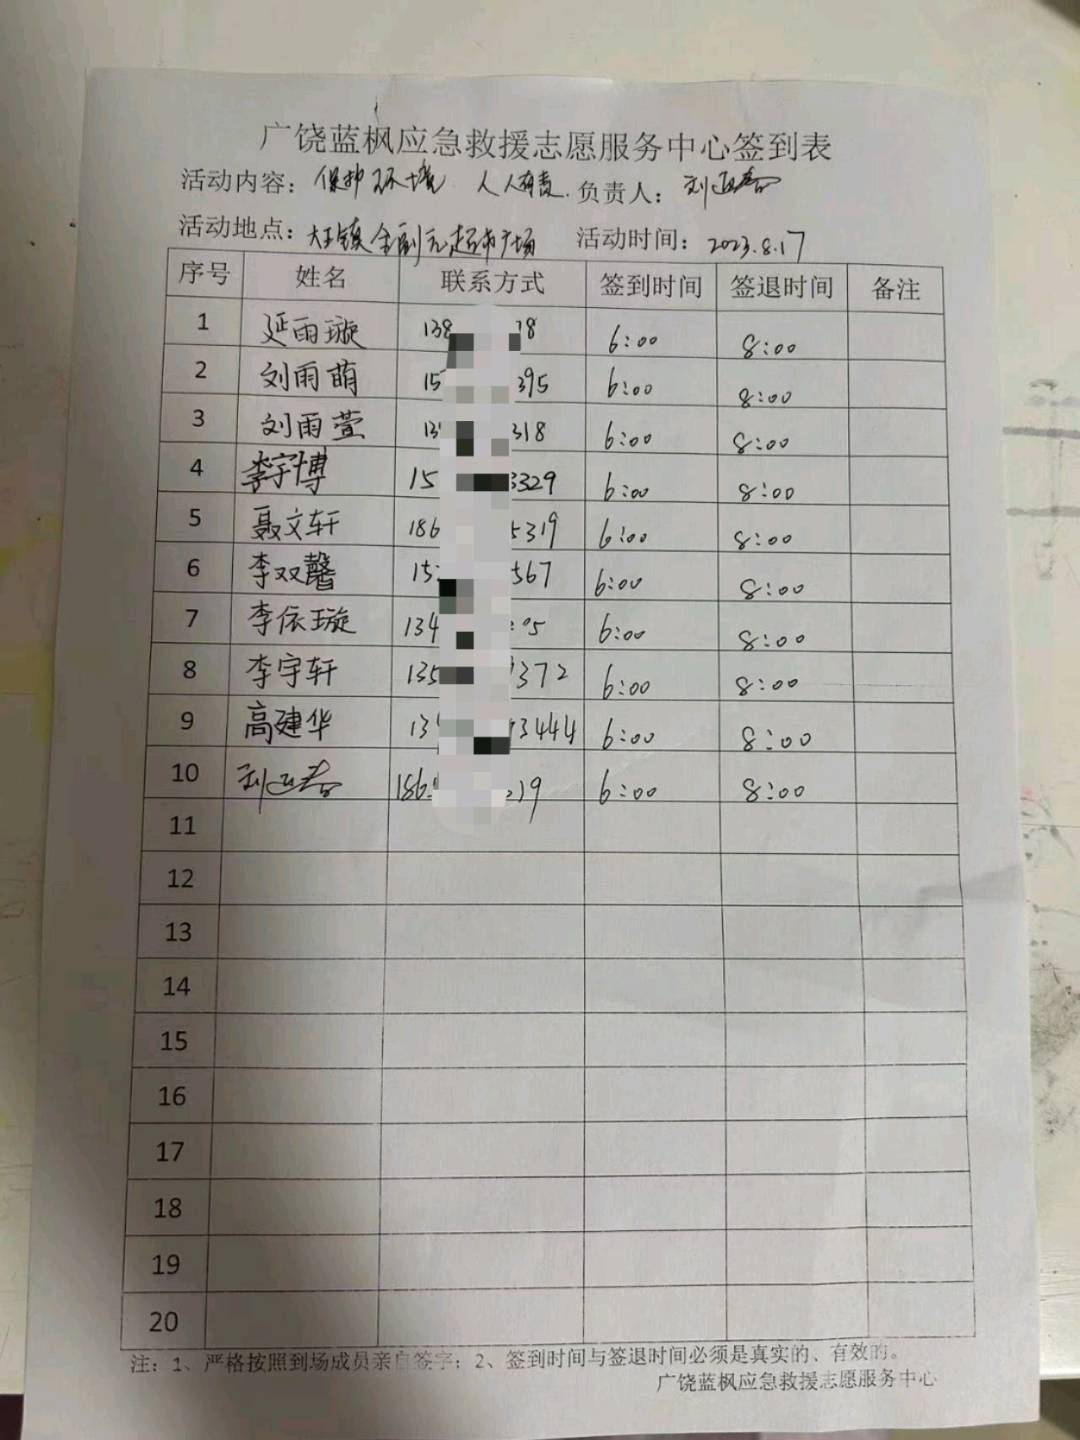 广饶蓝枫应急救援志愿服务中心签到表
活动内容：保护环境 人人有责. 负责人：刘
活动地点：大王镇全副元超市广场 活动时间：2023.8.17
序号 姓名 联系方式 签到时间 签退时间 备注
1 延雨璇 138 78 6:00 8:00
2 刘雨萌 15 395 6:00 8:00
3 刘雨萱 13 318 6:00 8:00
4 李宇博 15 3329 6:00 8:00
5 聂文轩 186 5319 6:00 8:00
6 李双馨 15 567 6:00 8:00
7 李依璇 134 05 6:00 8:00
8 李宇轩 135 372 6:00 8:00
9 高建华 13 3444 6:00 8:00
10 刘 186 19 6:00 8:00
11
12
13
14
15
16
17
18
19
20
注：1、严格按照到场成员亲自签字；2、签到时间与签退时间必须是真实的、有效的。
广饶蓝枫应急救援志愿服务中心